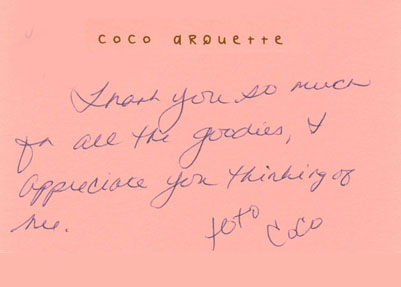 coco arquette
Thank you so much
for all the goodies, I
appreciate you thinking of
me.
xoxo Coco